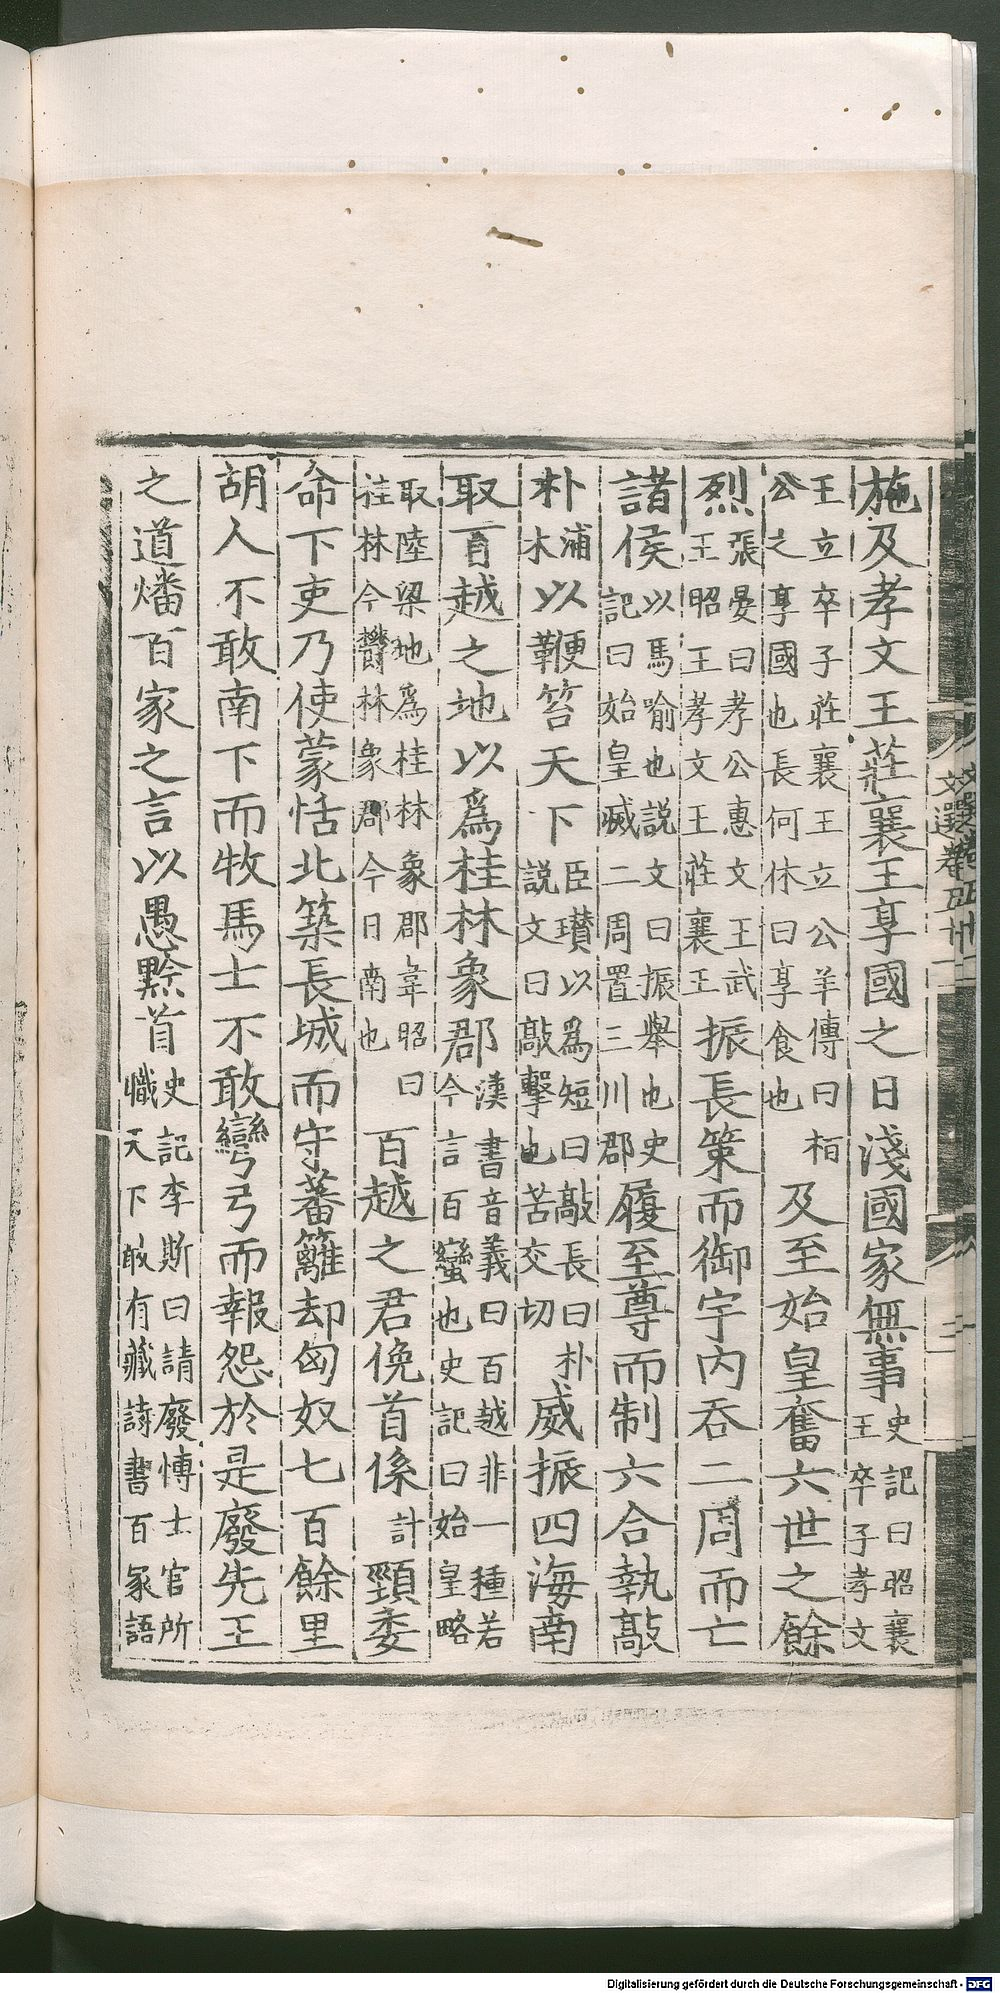 施及孝文王莊襄王享國之日淺國家無事史記曰昭襄王卒子孝文
王立卒子莊襄王立公羊傳曰栢公之享國也長何休曰享食也及至始皇奮六世之餘
烈張晏曰孝公惠文王武王昭王孝文王莊襄王振長策而御宇内吞二周而亡
諸侯以馬喻也說文曰振舉也史記曰始皇滅二周置三川郡履至尊而制六合執敲
朴浦木以鞭笞天下臣瓚以爲短曰敲長曰朴說文曰敲擊也苦交切威振四海南
取百越之地以爲桂林象郡漢書音義曰百越非一種若今言百蠻也史記曰始皇略
取陸梁地爲桂林象郡韋昭曰桂林今欝林象郡今日南也百越之君俛首係計頸委
命下吏乃使蒙恬北築長城而守蕃籬却匈奴七百餘里
胡人不敢南下而牧馬士不敢彎弓而報怨於是廢先王
之道燔百家之言以愚黔首史記李斯曰請廢博士官所職天下敢有藏詩書百家語
文選卷五十一
三
Digitalisierung gefördert durch die Deutsche Forschungsgemeinschaft - DFG